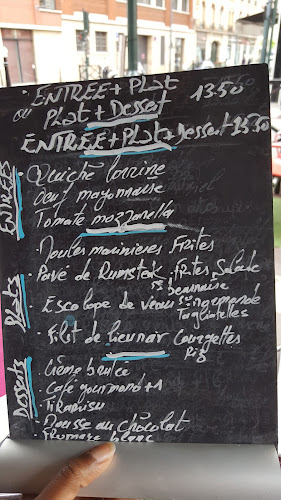 ENTREE + Plat
ou Plat + Dessert 13.50
ENTREE + Plat + Dessert 15.50
ENTREES
Quiche lorraine
Oeuf mayonnaise
Tomate mozzarella
Plats
Moules marinieres Frites
Pavé de Rumsteak frites Salade
sce bearnaise
Escalope de veau sce normande
Tagliatelles
Filet de lieu noir Courgettes
Riz
Desserts
Crème brulée
Café gourmand +1
Tiramisu
Mousse au chocolat
Fromage blanc